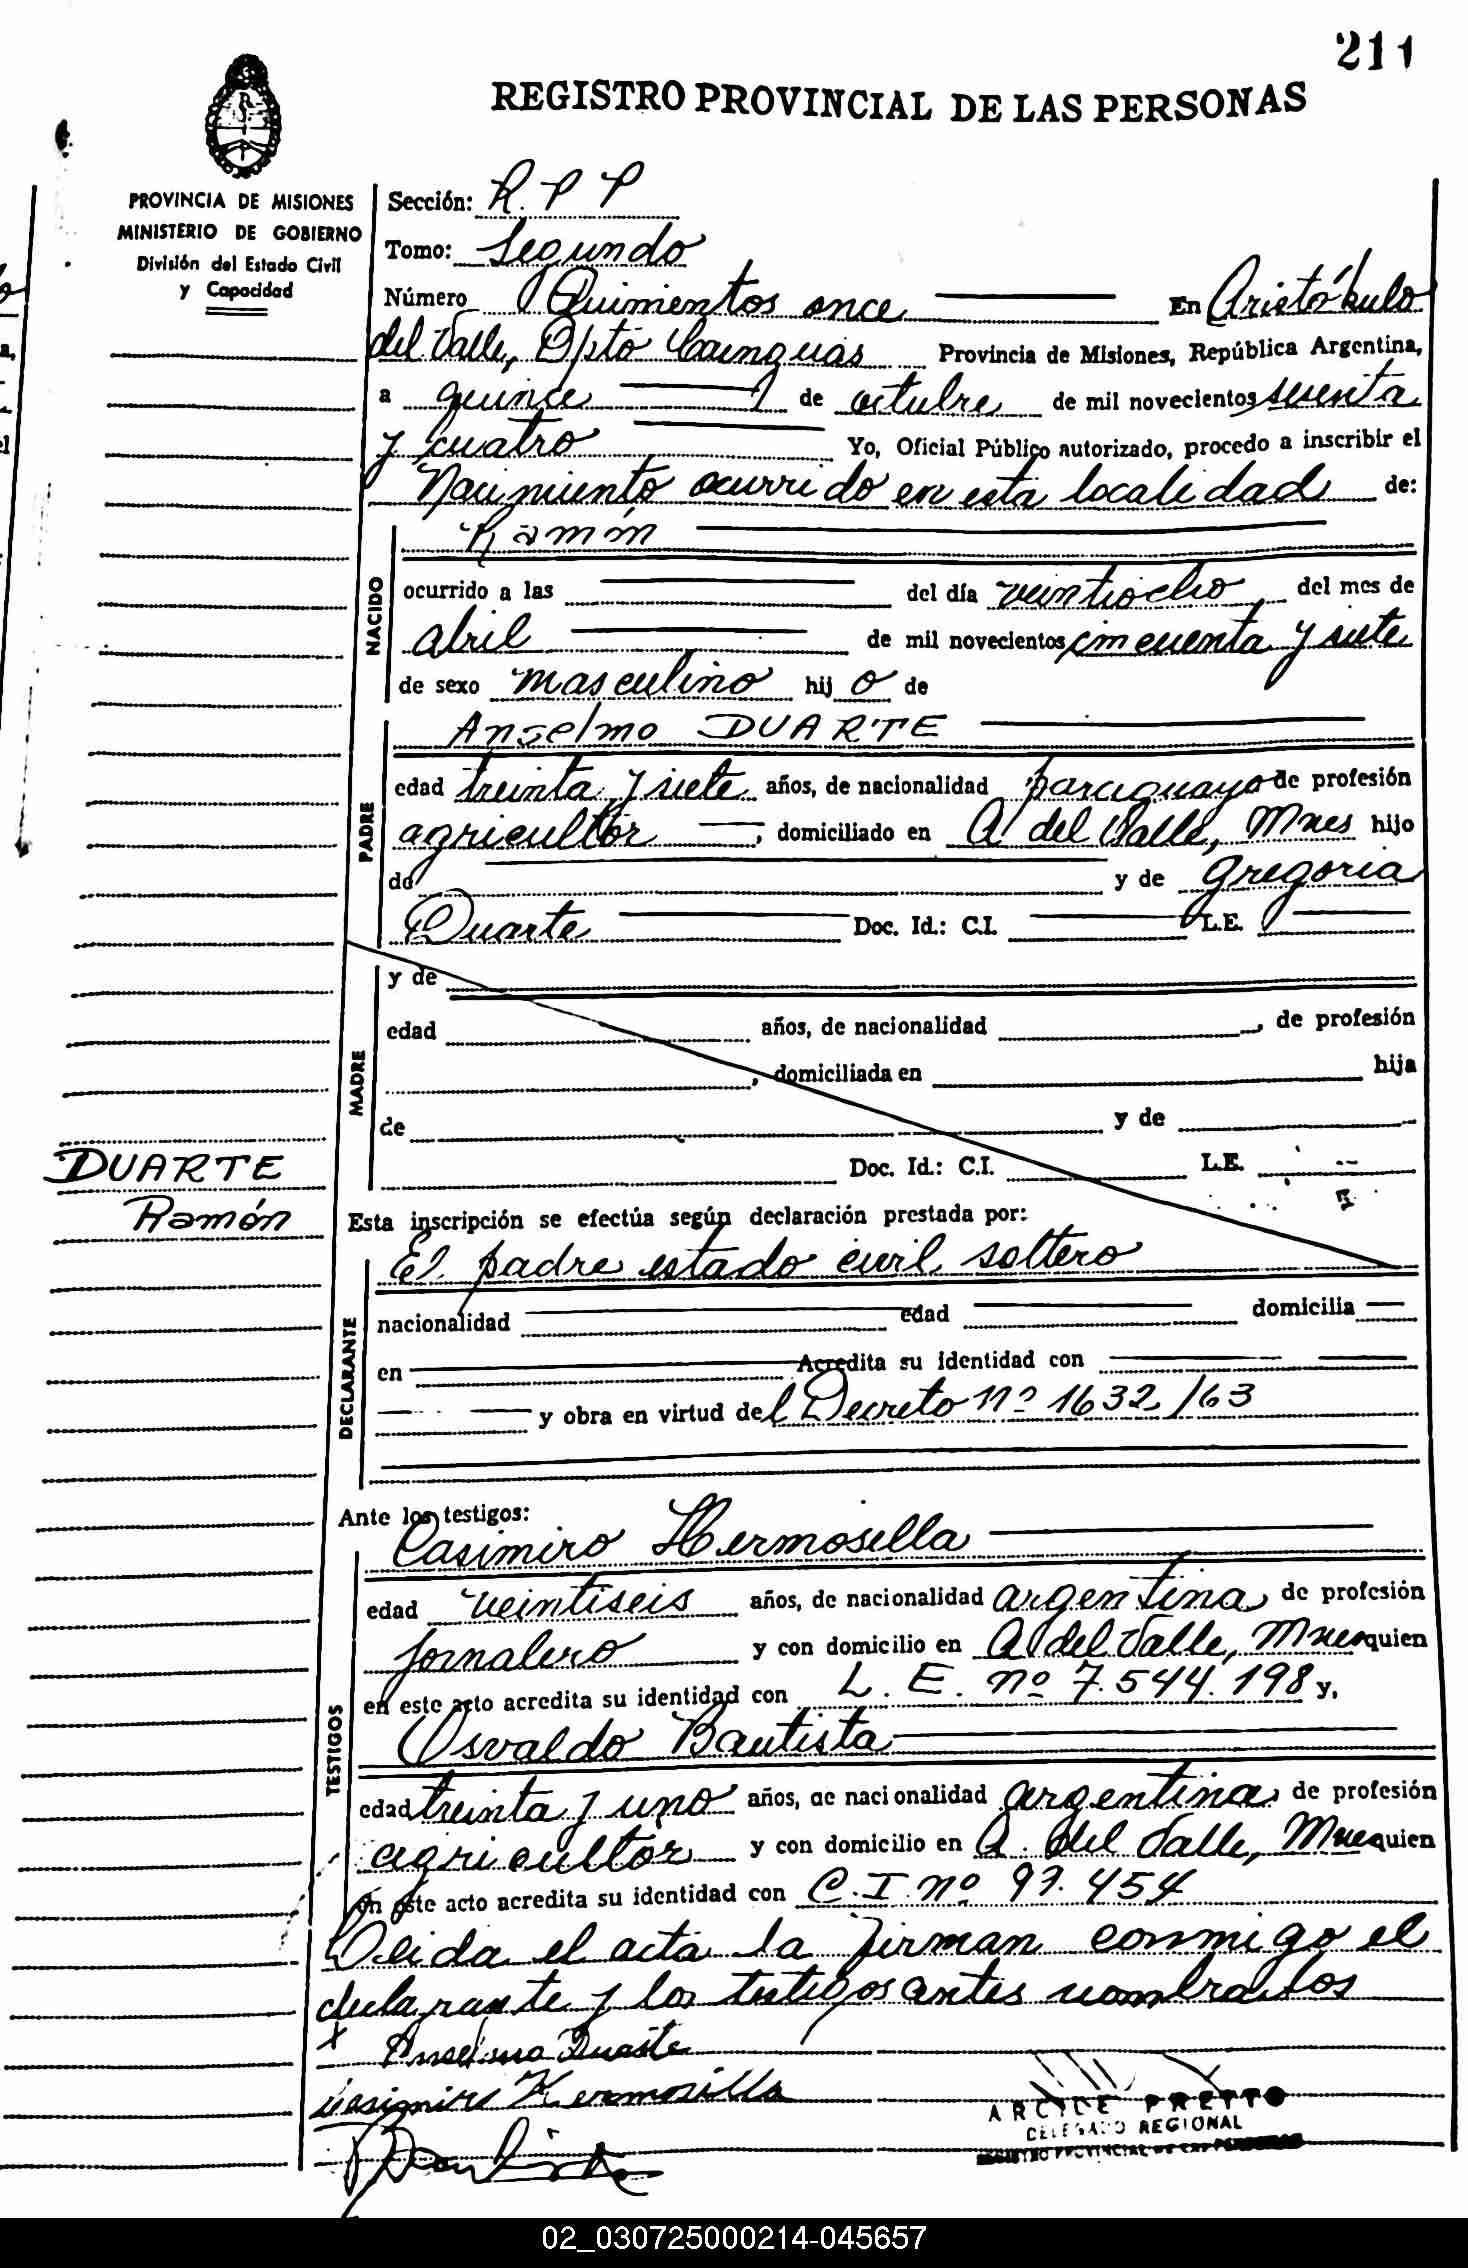 211
REGISTRO PROVINCIAL DE LAS PERSONAS
PROVINCIA DE MISIONES
MINISTERIO DE GOBIERNO
División del Estado Civil
y Capacidad
Sección: R.P.P
Tomo: Segundo
Número Quinientos once En Aristóbulo
del Valle, Dpto Cainguás Provincia de Misiones, República Argentina,
a quince de octubre de mil novecientos sesenta
y cuatro Yo, Oficial Público autorizado, procedo a inscribir el
Nacimiento ocurrido en esta localidad de:
NACIDO
Ramón
ocurrido a las del día veintiocho del mes de
abril de mil novecientos cincuenta y siete
de sexo masculino hijo de
PADRE
Anselmo DUARTE
edad treinta y siete años, de nacionalidad paraguaya de profesión
agricultor, domiciliado en A. del Valle, Mnes hijo
de y de Gregoria
Duarte Doc. Id.: C.I. L.E.
MADRE
y de
edad años, de nacionalidad , de profesión
, domiciliada en hija
de y de
Doc. Id.: C.I. L.E.
DUARTE
Ramón
Esta inscripción se efectúa según declaración prestada por:
DECLARANTE
El padre estado civil soltero
nacionalidad edad domicilia
en Acredita su identidad con
y obra en virtud del Decreto nº 1632/63
Ante los testigos:
TESTIGOS
Casimiro Hermosilla
edad veintiseis años, de nacionalidad argentina de profesión
jornalero y con domicilio en A. del Valle, Mnes quien
en este acto acredita su identidad con L.E. nº 7.544.198 y,
Osvaldo Bautista
edad treinta y uno años, de nacionalidad argentina de profesión
agricultor y con domicilio en A. del Valle, Mnes quien
en este acto acredita su identidad con C.I. nº 97.454
Leida el acta la firman conmigo el
declarante y los testigos antes nombrados
x Anselmo Duarte
Casimiro Hermosilla
Bautista
ARCIDE PRETTO
DELEGADO REGIONAL
REGISTRO PROVINCIAL DE LAS PERSONAS
02_030725000214-045657